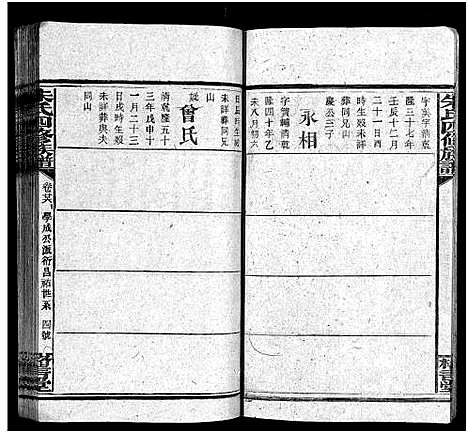 朱氏四修族譜
字英字清乾
隆三十七年
壬辰十二月
二十一日酉
時生歿未詳
葬同兄山
慶公三子
永相
字賀輔清乾
未八月初六
日丑時生歿
未詳葬同兄
山
配曾氏
清乾隆五十
三年戊申十
一月二十三
日戌時生歿
未詳葬與夫
同山
朱氏四修族譜
學成公派衍昌祐世系
四號